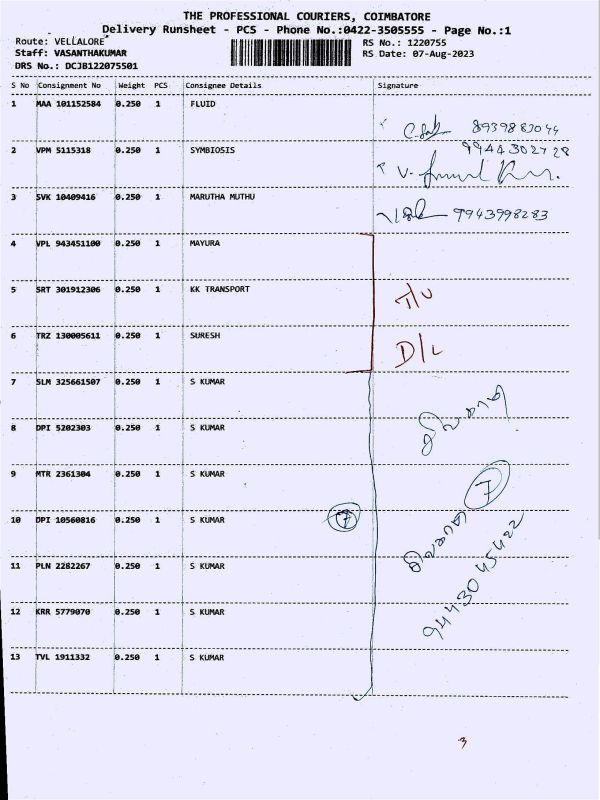 THE PROFESSIONAL COURIERS, COIMBATORE
Delivery Runsheet - PCS - Phone No.:0422-3505555 - Page No.:1
Route: VELLALORE RS No.: 1220755
Staff: VASANTHAKUMAR RS Date: 07-Aug-2023
DRS No.: DCJB122075501
S No Consignment No Weight PCS Consignee Details Signature
1 MAA 101152584 0.250 1 FLUID
8939883044
2 VPM 5115318 0.250 1 SYMBIOSIS 9944302728
3 SVK 10409416 0.250 1 MARUTHA MUTHU
9943998283
4 VPL 943451100 0.250 1 MAYURA
5 SRT 301912306 0.250 1 KK TRANSPORT
6 TRZ 130005611 0.250 1 SURESH
D/L
7 SLM 325661507 0.250 1 S KUMAR
8 DPI 5202303 0.250 1 S KUMAR
9 MTR 2361304 0.250 1 S KUMAR
7
10 DPI 10560816 0.250 1 S KUMAR 7
11 PLN 2282267 0.250 1 S KUMAR
94430 45422
12 KRR 5779070 0.250 1 S KUMAR
13 TVL 1911332 0.250 1 S KUMAR
3